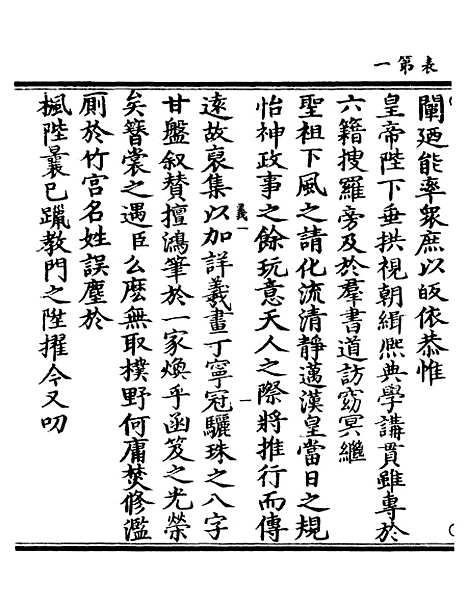 表第一
闡廼能率衆庶以皈依恭惟
皇帝陛下垂拱視朝緝熙典學講貫雖專於
六籍搜羅旁及於羣書道訪窈冥繼
聖祖下風之請化流清靜邁漢皇當日之規
怡神政事之餘玩意天人之際將推行而傳
義一
一
遠故裒集以加詳羲畫丁寧冠驪珠之八字
甘盤叙賛擅鴻筆於一家煥乎函笈之光榮
矣簪裳之遇臣么麽無取撲野何庸焚修濫
厠於竹宫名姓誤塵於
楓陛曩已躐教門之陞擢今又叨